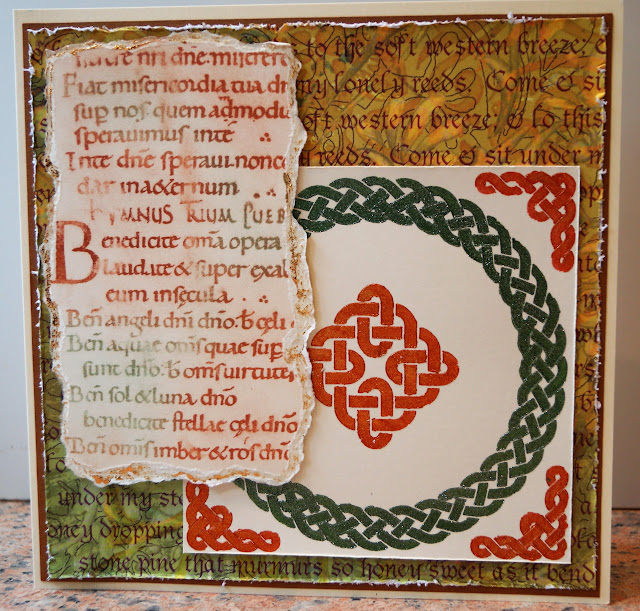 nri dn̄e. miserere
Fiat misericordia tua dn̄
sup̄ nos. quem admodu
speravimus in te
In te dn̄e speravi. non co
dar in aeternum
HYMNUS TRIUM PUER
Benedicite om̄a opera
laudate & super exal
eum in secula
Ben̄ angeli dn̄i dn̄o. b̄ cęli
Ben̄ aquae om̄s quae sup̄
sunt dn̄o. b̄ om̄s virtutes
Ben̄ sol & luna dn̄o
benedicite stellae cęli dn̄o
Ben̄ om̄is imber & ros dn̄o
s to the soft western breeze; e
my lonely reeds. Come & si
ft western breeze; & to this
reeds. Come & sit under m
under my sto
oney dropping
stone pine that murmurs so honey sweet as it bend